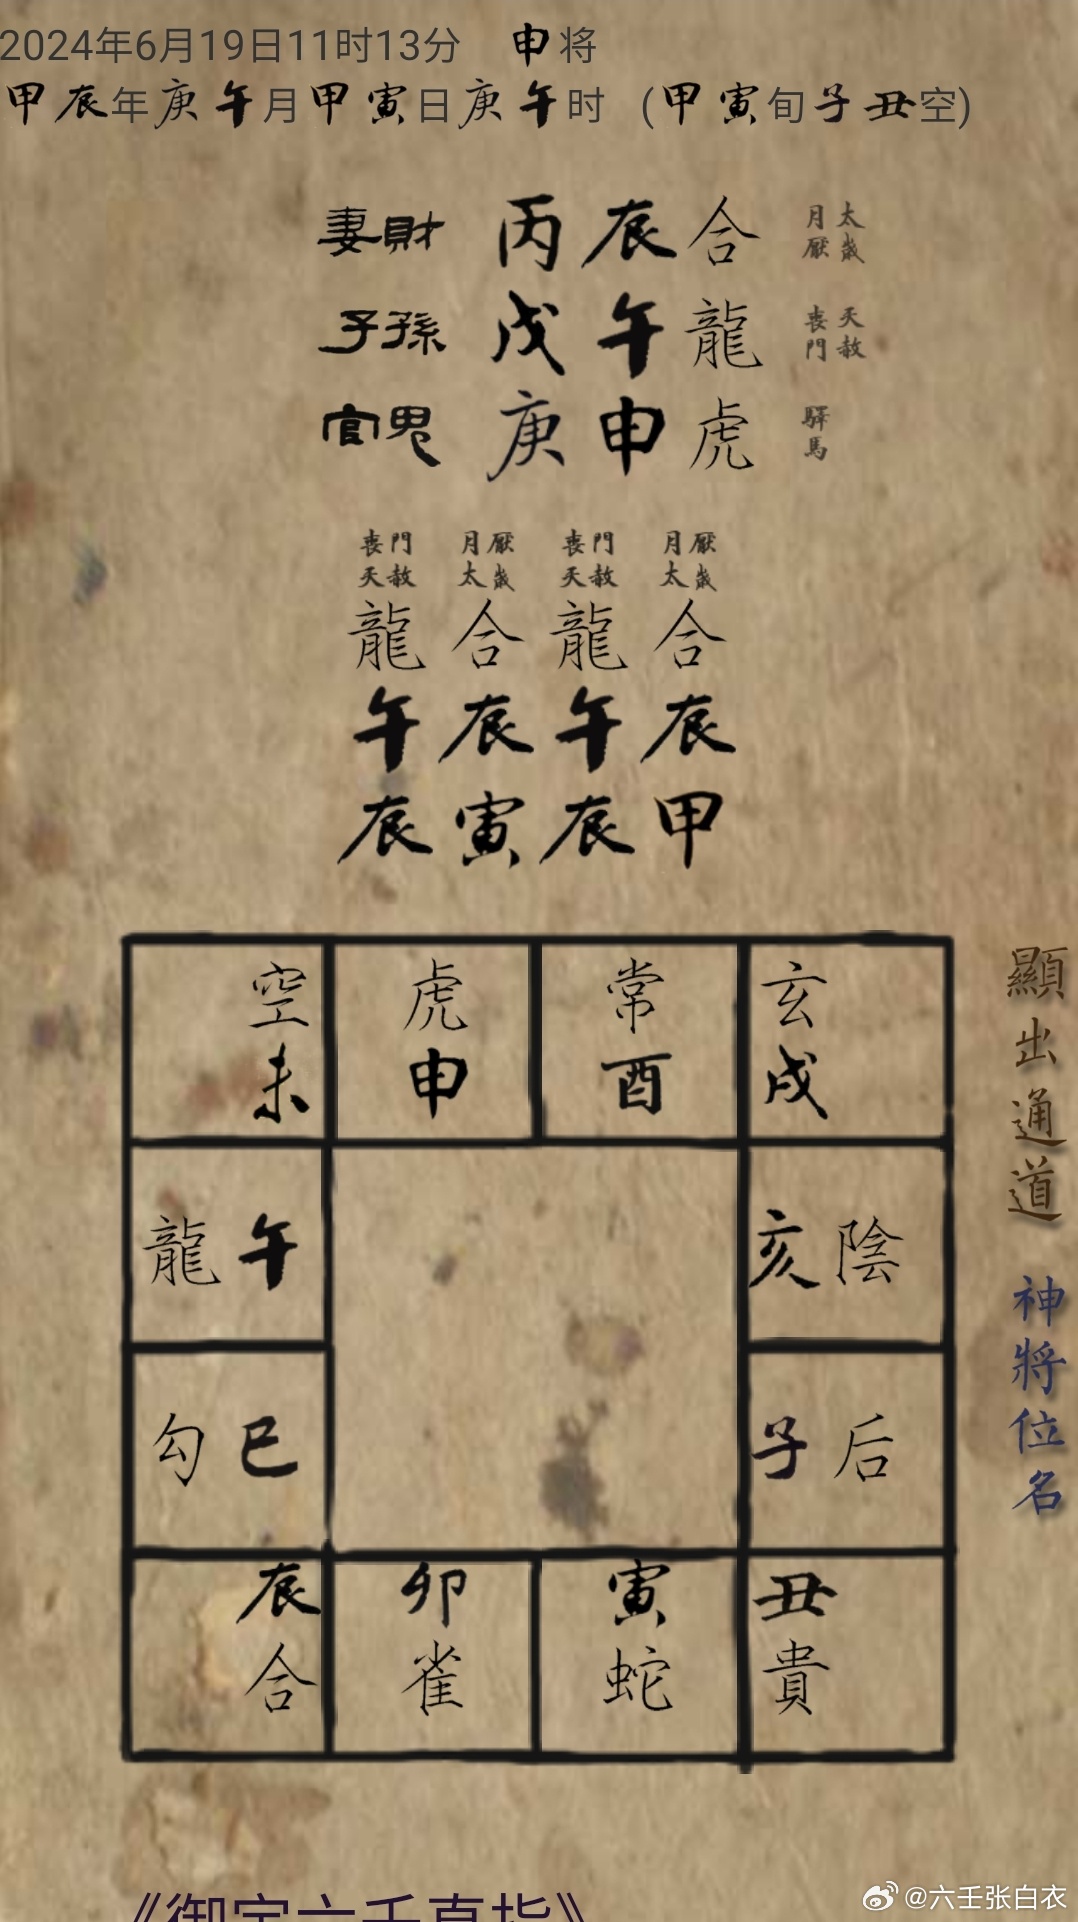 2024年6月19日11时13分 申将
甲辰年庚午月甲寅日庚午时 (甲寅旬子丑空)
妻財 丙辰合 月厭 太歲
子孫 戊午龍 喪門 天赦
官鬼 庚申虎 驛馬
喪門 月厭 喪門 月厭
天赦 太歲 天赦 太歲
龍合龍合
午辰午辰
辰寅辰甲
空 虎 常 玄
未 申 酉 戌
龍午 亥陰
勾巳 子后
辰 卯 寅 丑
合 雀 蛇 貴
顯出通道
神將位名
《御定六壬直指》
@六壬张白衣